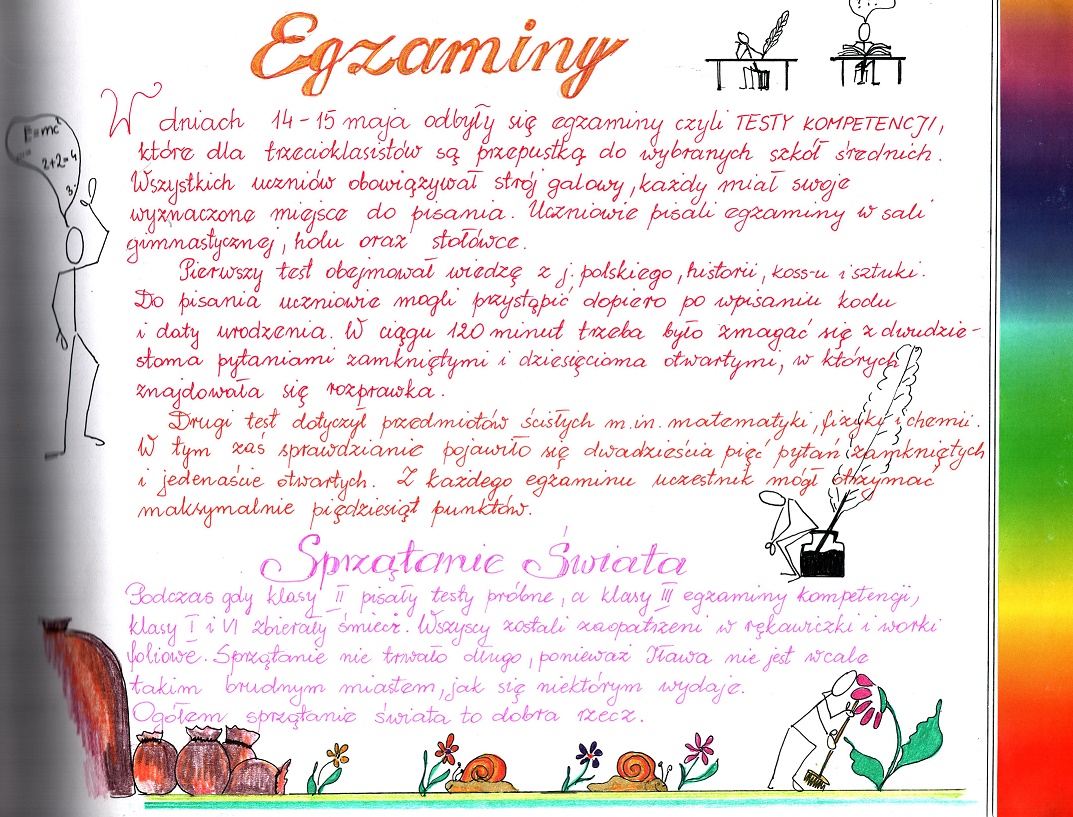 Egzaminy
E=mc²
2+2=4
3-
W dniach 14-15 maja odbyły się egzaminy czyli TESTY KOMPETENCJI,
które dla trzecioklasistów są przepustką do wybranych szkół średnich.
Wszystkich uczniów obowiązywał strój galowy, każdy miał swoje
wyznaczone miejsce do pisania. Uczniowie pisali egzaminy w sali
gimnastycznej, holu oraz stołówce.
Pierwszy test obejmował wiedzę z j. polskiego, historii, koss-u i sztuki.
Do pisania uczniowie mogli przystąpić dopiero po wpisaniu kodu
i daty urodzenia. W ciągu 120 minut trzeba było zmagać się z dwudzie-
stoma pytaniami zamkniętymi i dziesięcioma otwartymi, w których
znajdowała się rozprawka.
Drugi test dotyczył przedmiotów ścisłych m.in. matematyki, fizyki i chemii.
W tym zaś sprawdzianie pojawiło się dwadzieścia pięć pytań zamkniętych
i jedenaście otwartych. Z każdego egzaminu uczestnik mógł otrzymać
maksymalnie pięćdziesiąt punktów.
Sprzątanie Świata
Podczas gdy klasy II pisały testy próbne, a klasy III egzaminy kompetencji,
klasy I i VI zbierały śmieci. Wszyscy zostali zaopatrzeni w rękawiczki i worki
foliowe. Sprzątanie nie trwało długo, ponieważ Iława nie jest wcale
takim brudnym miastem, jak się niektórym wydaje.
Ogółem sprzątanie świata to dobra rzecz.